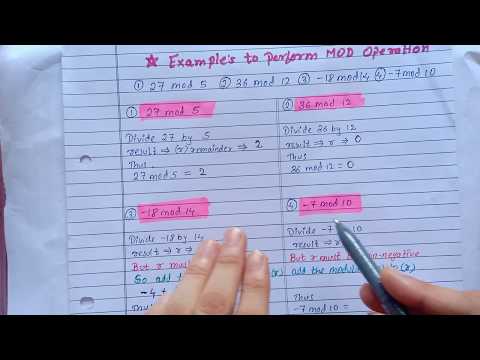 ☆ Example's to perform MOD Operation
① 27 mod 5 ② 36 mod 12 ③ -18 mod 14 ④ -7 mod 10
① 27 mod 5
Divide 27 by 5
result ⇒ (r) remainder ⇒ 2
Thus
27 mod 5 = 2
② 36 mod 12
Divide 36 by 12
result ⇒ r ⇒ 0
Thus
36 mod 12 = 0
③ -18 mod 14
Divide -18 by 14
result ⇒ r ⇒
But r mus
So add t
-4 +
Thus
④ -7 mod 10
Divide -7 10
result ⇒ r
But r must non-negative
(r) add the modulu (r)
Thus
-7 mod 10 =